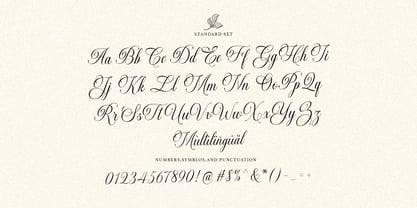 STANDARD SET
Aa Bb Cc Dd Ee Ff Gg Hh Ii
Jj Kk Ll Mm Nn Oo Pp Qq
Rr Ss Tt Uu Vv Ww Xx Yy Zz
Mùltilingúàl
NUMBERS,SYMBLOS,AND PUNCTUATION
01234567890!@#$%^&*()-_=+